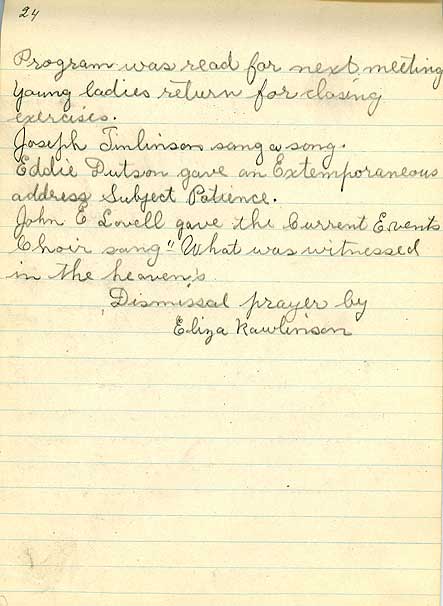 24
Program was read for next meeting
Young ladies return for closing
exercises.
Joseph Timlinson sang a song.
Eddie Dutson gave an Extemporaneous
address Subject Patience.
John E Lovell gave the Current Events
Choir sang "What was witnessed
in the heavens
Dismissal prayer by
Eliza Rawlinson